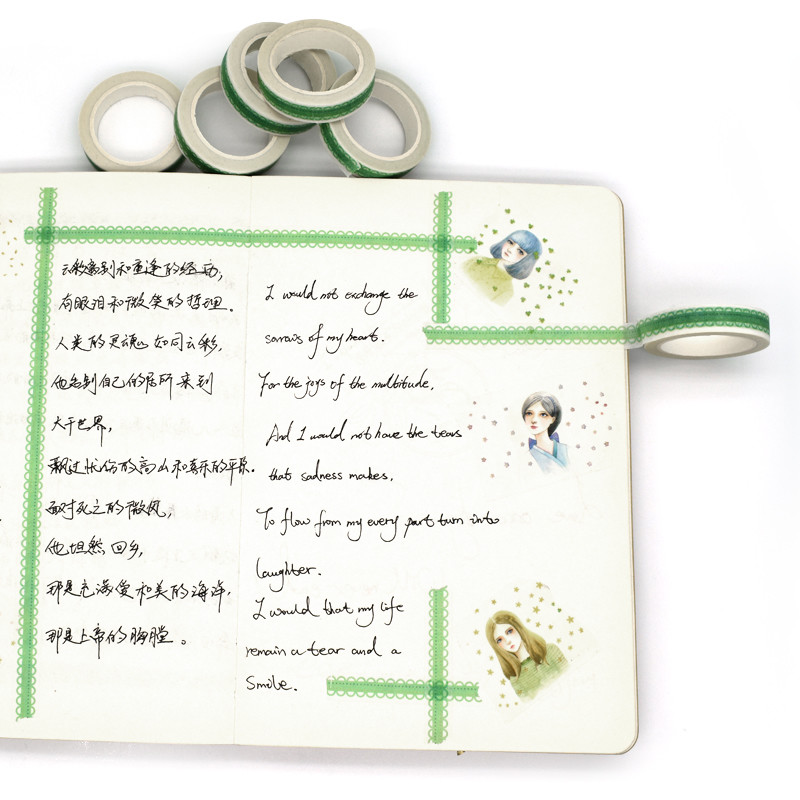 云般离别和重逢的经历,
有眼泪和微笑的哲理.
人类的灵魂如同云彩,
他告别自己的居所来到
大千世界,
飘过忧伤的高山和喜乐的平原.
面对死亡的微风,
他坦然回乡,
那是充满爱和美的海洋,
那是上帝的胸膛。
I would not exchange the
sorrows of my heart.
For the joys of the multitude,
And I would not have the tears
that sadness makes,
To flow from my every part turn into
laughter.
I would that my life
remain a tear and a
Smile.